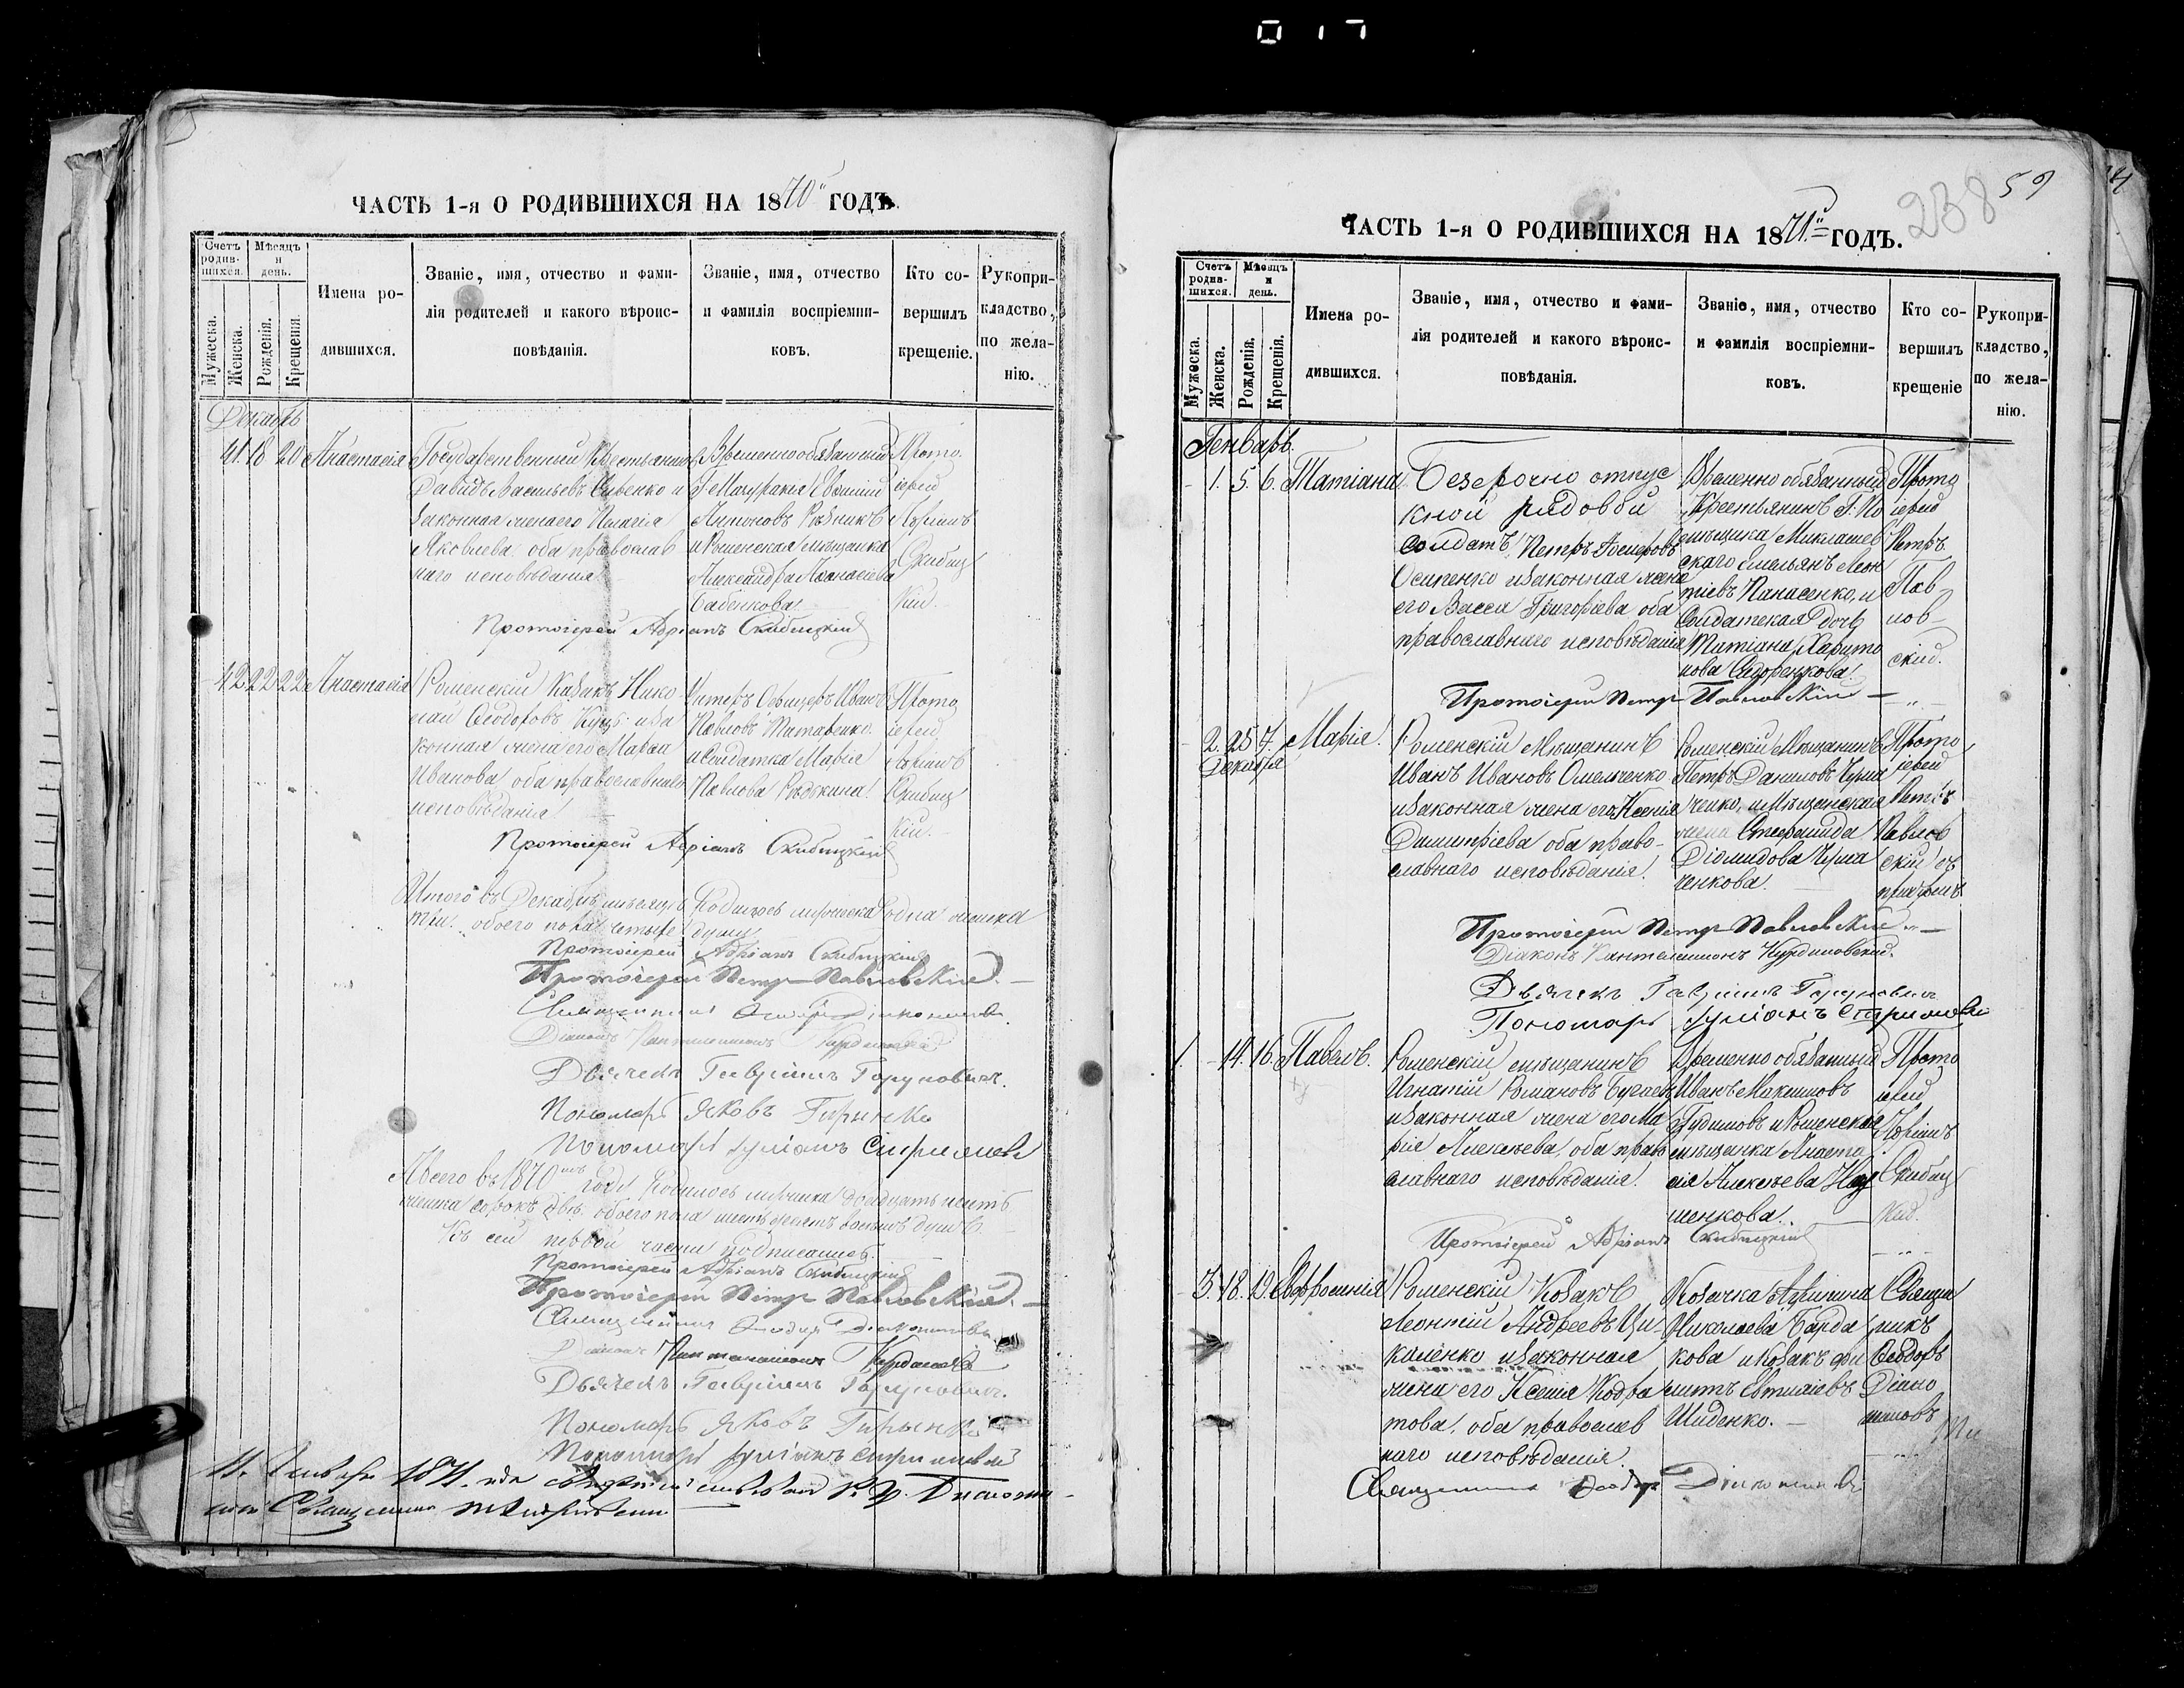 017
ЧАСТЬ 1-я О РОДИВШИХСЯ НА 1870 ГОДЪ.
Счетъ родив-шихся.
Мѣсяцъ и день.
Мужеска.
Женска.
Рожденія.
Крещенія.
Имена ро-
дившихся.
Званіе, имя, отчество и фами-
лія родителей и какого вѣроис-
повѣданія.
Званіе, имя, отчество
и фамилія воспріемни-
ковъ.
Кто со-
вершилъ
крещеніе.
Рукопри-
кладство,
по жела-
нію.
Декабрь
41. 18 20 Анастасія
Государственный Крестьянинъ
Давидъ Васильевъ Сивенко и
законная жена его Пелагія
Яковлева оба православ
наго исповѣданія
Временнообязанный
Г. Мачурскія Евѳимій
Антоновъ Рѣзникъ
и Роменская мѣщанка
Александра Аѳанасіева
Бабенкова
Прото
іерей
Адріанъ
Скибиц
кій.
Протоіерей Адріанъ Скибицкій
42 22 22 Анастасія
Роменскій Казакъ Нико
лай Ѳеодоровъ Куцъ и за
конная жена его Марѳа
Иванова оба православнаго
исповѣданія
Унтеръ Офицеръ Иванъ
Павловъ Титаренко
и Солдатка Марія
Павлова Рѣдькина
Прото
іерей
Адріанъ
Скибиц
кій.
Протоіерей Адріанъ Скибицкій
Итого въ Декабрѣ мѣсяцѣ Родилось мужеска одна женска
три обоего пола четыре души
Протоіерей Адріанъ Скибицкій
Протоіерей Петръ Павловскій
Священникъ Ѳеодоръ Діакономовъ
Діаконъ Пантелеимонъ Курдиновскій
Дьячекъ Гавріилъ Горуновичъ.
Пономарь Яковъ Гиренко
Пономарь Іуліанъ
А всего въ 1870мъ году Родилось мужеска двадцать шесть
женска сорокъ двѣ обоего пола шестьдесятъ восемь душъ
Къ сей первой части подписались.
Протоіерей Адріанъ Скибицкій
Протоіерей Петръ Павловскій
Священникъ Ѳеодоръ Діакономовъ
Діаконъ Пантелеимонъ Курдиновскій
Дьячекъ Гавріилъ Горуновичъ.
Пономарь Яковъ Гиренко
Пономарь Іуліанъ
11. Января 1871 года
Священникъ
238
59
ЧАСТЬ 1-я О РОДИВШИХСЯ НА 1871 ГОДЪ.
Счетъ родив-шихся.
Мѣсяцъ и день.
Мужеска.
Женска.
Рожденія.
Крещенія.
Имена ро-
дившихся.
Званіе, имя, отчество и фами-
лія родителей и какого вѣроис-
повѣданія.
Званіе, имя, отчество
и фамилія воспріемни-
ковъ.
Кто со-
вершилъ
крещеніе
Рукопри-
кладство,
по жела-
нію.
Генварь.
1. 5. 6. Татіана
Безсрочно отпус
кной рядовой
солдатъ Петръ
Осипенко и законная жена
его Васса Григоріева оба
православнаго исповѣданія
Временно обязанный
Крестьянинъ Г. По
мѣщика Миклашев
скаго Емельянъ Леон
тіевъ Панасенко, и
Солдатская дочь
Татіана Харито
нова Сидоренкова.
Прото
іерей
Петръ
Пав
лов
скій.
Протоіерей Петръ Павловскій
2. 25 7. Марія.
Декабря
Роменскій Мѣщанинъ
Иванъ Ивановъ Омельченко
и законная жена его Ксенія
Димитріева оба право-
славнаго исповѣданія.
Роменскій Мѣщанинъ
Петръ Даниловъ Чума
ченко, и Мѣщанская
жена Стефанида
Діомидова Чума
ченкова.
Прото
іерей
Петръ
Павлов
скій съ
причтомъ
Протоіерей Петръ Павловскій
Діаконъ Пантелеимонъ Курдиновскій.
Дьячекъ Гавріилъ Горуновичъ
Пономарь Іуліанъ
1. 14. 16. Павелъ.
Роменскій мѣщанинъ
Игнатій Романовъ Бугаевъ
и законная жена его Ма
рія Алексѣева, оба право
славнаго исповѣданія.
Временно обязанный
Иванъ Максимовъ
Гудимовъ и Роменская
мѣщанка Анаста
сія Алексѣева Нау
менкова.
Прото
іерей
Адріанъ
Скибиц
кій.
Протоіерей Адріанъ Скибицкій
3. 18. 19. Евфросинія
Роменскій Козакъ
Леонтій Андреевъ Ци
каленко и законная
жена его Ксенія Кодра
това, оба православ
наго исповѣданія.
Козачка Ирина
Николаева Барда
кова и козакъ Фи
липъ Евтихіевъ
Шиденко.
Священ
никъ
Ѳеодоръ
Діако
номовъ
Священникъ Ѳеодоръ Діакономовъ